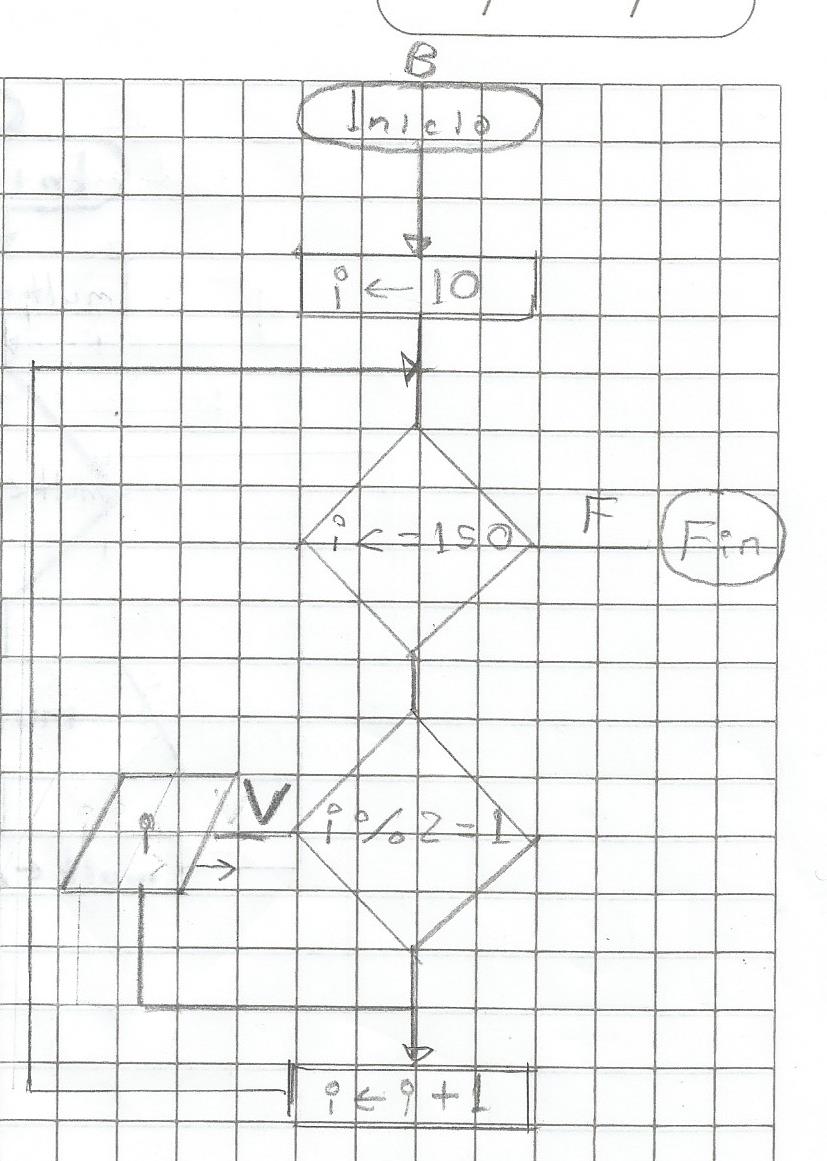 B
Inicio
i ← 10
i <= 150
F
Fin
V
i % 2 = 1
i
→
i ← i + 1